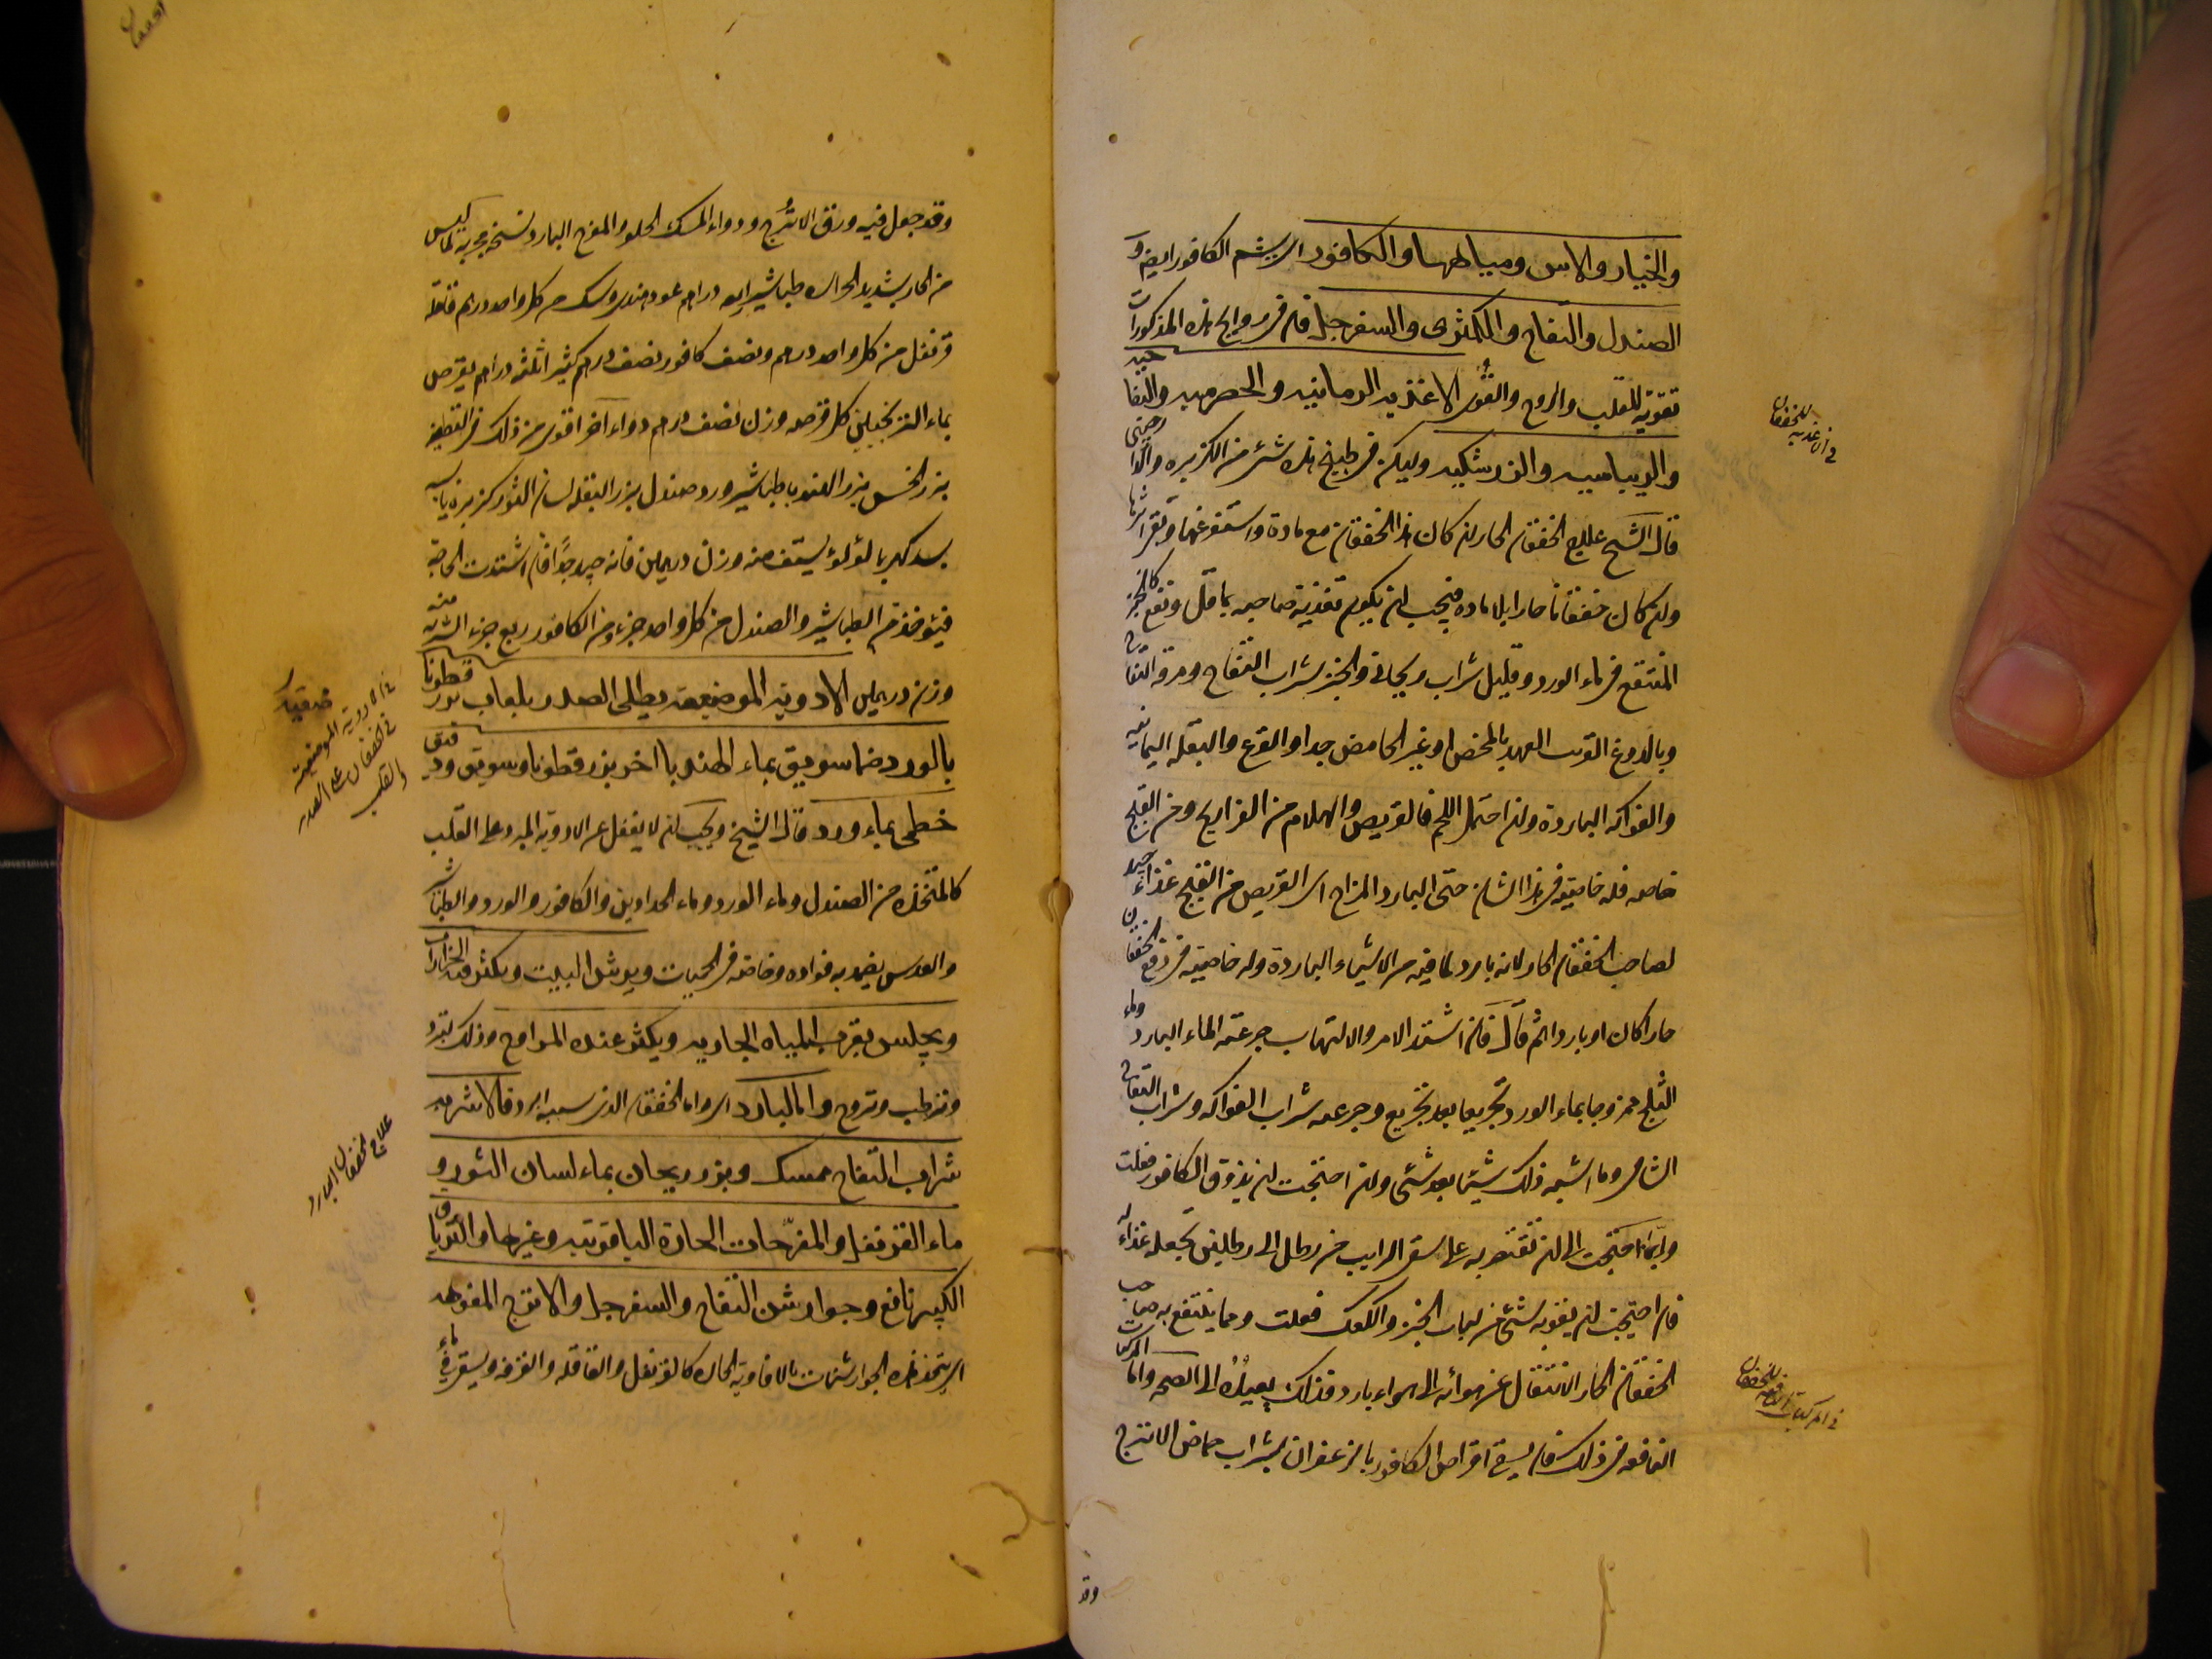 والخيار والاس ومياهها والكافور اى يشم الكافور ايضا و
الصندل والتفاح والكمثرى والسفرجل فان فى روايح هذه المذكورات
تقوية للقلب والروح والقوى الاغذيه الرمانيه والحصرميه والتفاحيه
والريباسيه والزرشكيه وليكن فى طبيخ هذه شئ من الكزبره
قال الشيخ علاج الخفقان الحار ان كان هذا الخفقان مع مادة واستفرغتها وبقى اثرها
وان كان خفقانا حارا بلا ماده فيجب ان يكون تغذية صاحبه بما قل ونفع كالخبز
المنقع فى ماء الورد وقليل شراب ريحانى والخبز بشراب التفاح ومرقة التفاح
وبالدوغ القريب العهد بالمخض او غير الحامض جدا والقرع والبقله اليمانيه
والفواكه البارده وان احتمل اللحم فالقريص والهلام من الفراريج ومن القبج
خاصه فله خاصيه فى هذا الشان حتى البارد المزاج اى القريص من القبج غذاء جيد
لصاحب الخفقان الحار لانه بارد لما فيه من الاشياء البارده وله خاصيه فى دفع الخفقان
حارا كان او باردا ثم قال فان اشتد الامر والالتهاب جرعته الماء البارد وماء
الثلج ممزوجا بماء الورد تجريعا بعد تجريع وجرعه شراب الفواكه وشراب التفاح
الشامى وما اشبه ذلك شيئا بعد شئ وان احتجت ان يذوق الكافور فعلت
وانما احتجت الى ان تقتصر به على سقى الرايب من رطل الى رطلين تجعله غذاء له
فان احتجت ان يقويه بشئ من لباب الخبز والكعك فعلت ومما ينتفع به صاحب
الخفقان الحار الانتقال عن هوائه الى هواء بارد فذلك يعيده الى الصحه واما المركبات
النافعه من ذلك فان يسقى اقراص الكافور بالزعفران بشراب حماض الاترج
فى الاغذيه للخفقان
فى المركبات النافعه للخفقان
وقد
وقد جعل فيه ورق الاترج ودواء المسك الحلو والمفرح البارد نسخه مجربه
من الحار شديد الحراره طباشير اربعه دراهم عود هندى وسك من كل واحد درهم قاقله
قرنفل من كل واحد درهم ونصف كافور نصف درهم كثيرا ثلثه دراهم يقرص
بماء الترنجبين كل قرصه وزن نصف درهم دواء اخر اقوى من ذلك فى التطفيه
بزر الخس بزر الهندبا طباشير ورد صندل بزر البقله لسان الثور كزبره يابسه
بسد كهربا لؤلؤ يستف منه وزن درهمين فانه جيد جدا فان اشتدت الحاجه
فيؤخذ من الطباشير والصندل من كل واحد جزء ومن الكافور ربع جزء الشربه منه
وزن درهمين الادويه الموضعيه يطلى الصدر بلعاب بزر قطونا
بالورد ضما سويق بماء الهندبا اخر بزر قطونا وسويق ودقيق
خطمى بماء ورد قال الشيخ ويجب ان لا يغفل عن الادويه المبرده على القلب
كالمتخذه من الصندل وماء الورد وماء الخلاف والكافور والورد والطباشير
والعدس يضمد به فؤاده وخاصه فى الحميات ويرش البيت ويكثر فيه الخضرات
ويجلس بقرب المياه الجاريه ويكثر عنده المراوح وذلك لتبرد
وترطب وتروح واما البارد اى واما الخفقان الذى سببه البرد فالاشربه
شراب التفاح ممسك وبزر ريحان بماء لسان الثور و
ماء القرنفل والمفرحات الحارة الياقوتيه وغيرها والترياق
الكبير نافع وجوارشن التفاح والسفرجل والاترج المفوهه
اى يتخذ هذه الجوارشنات بالافاويه الحاره كالقرنفل والقاقله والقرفه ويسقى فى ماء
فى الادويه الموضعيه
فى الخفقان على الصدر
والقلب
علاج الخفقان البارد